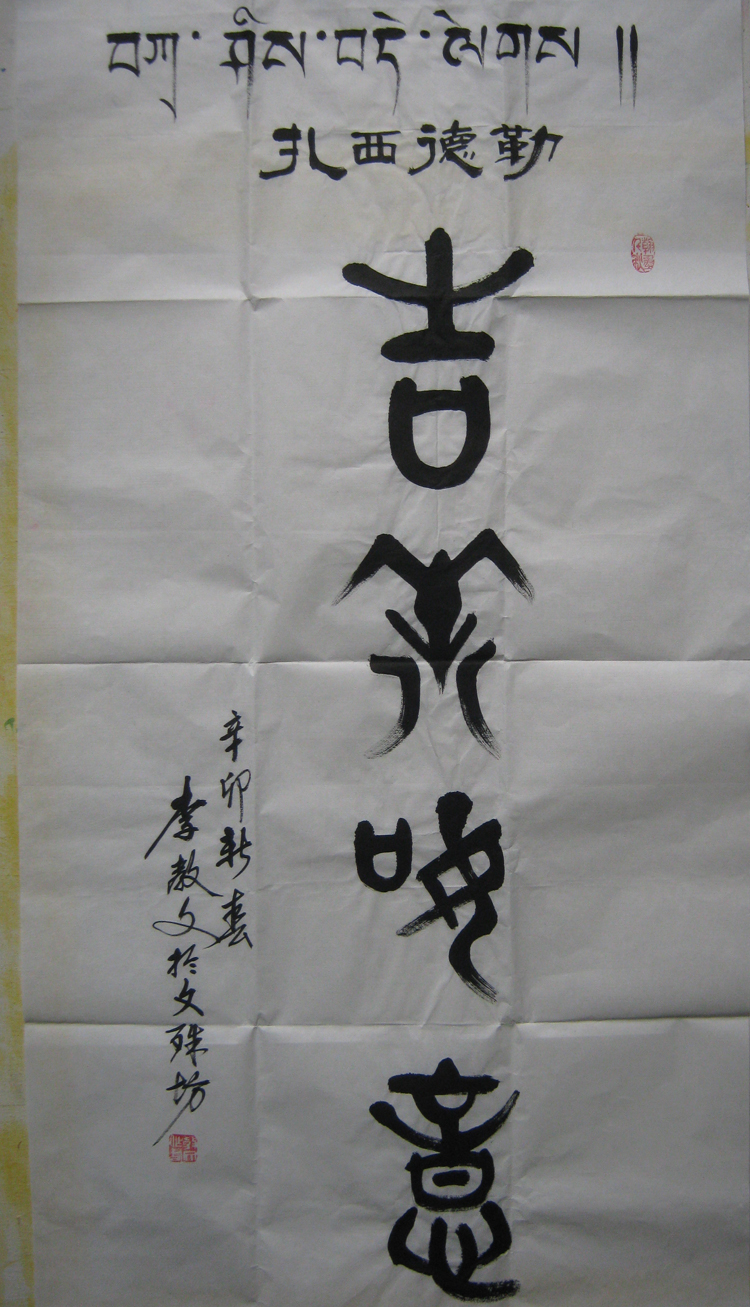 བཀྲ་ཤིས་བདེ་ལེགས།།
扎西德勒
吉祥如意
辛卯新春
李教文於文殊坊